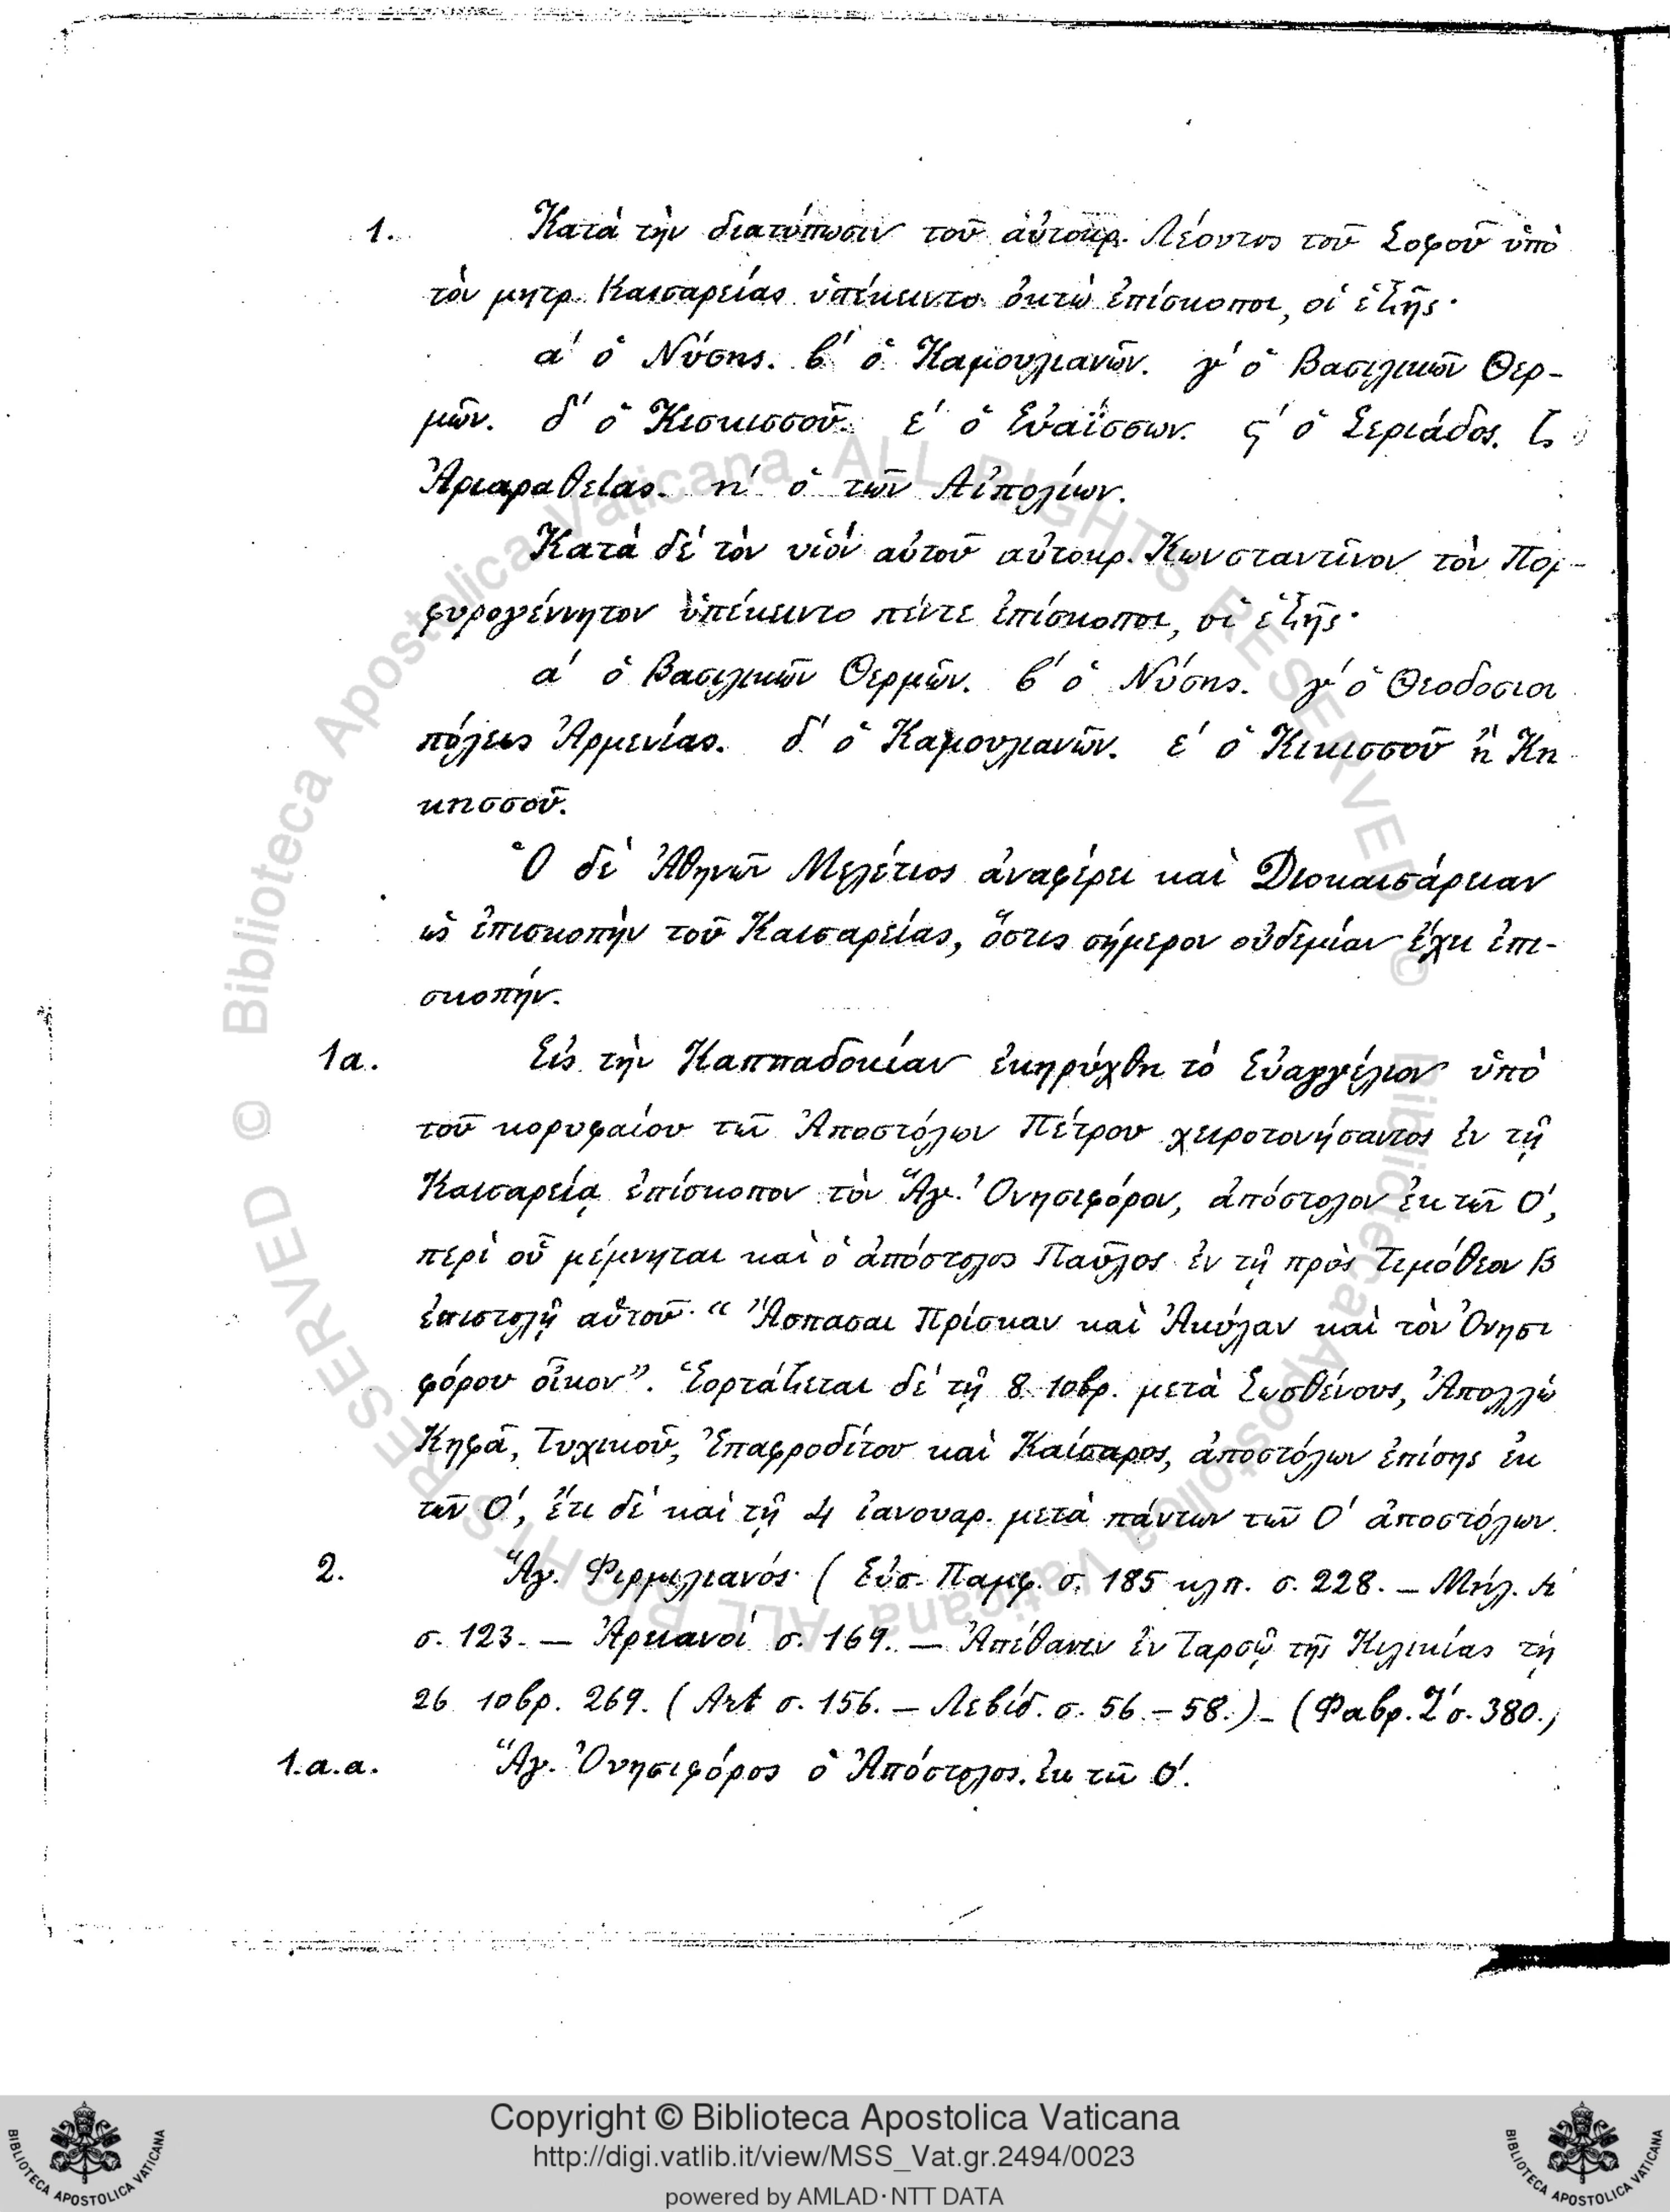 1. Κατὰ τὴν διατύπωσιν τοῦ αὐτοκρ. Λέοντος τοῦ Σοφοῦ ὑπὸ
τὸν μητρ. Καισαρείας ὑπέκειντο ὀκτὼ ἐπίσκοποι, οἱ ἑξῆς·
α΄ ὁ Νύσης. β΄ ὁ Καμουλιανῶν. γ΄ ὁ Βασιλικῶν Θερ-
μῶν. δ΄ ὁ Κισκισσοῦ. ε΄ ὁ Εὐαΐσσων. ϛ΄ ὁ Σεριάδος. ζ ὁ
Ἀριαραθείας. η΄ ὁ τῶν Αἰπολίων.
Κατὰ δὲ τὸν υἱόν αὐτοῦ αὐτοκρ. Κωνσταντῖνον τὸν Πορ-
φυρογέννητον ὑπέκειντο πέντε ἐπίσκοποι, οἱ ἑξῆς·
α΄ ὁ Βασιλικῶν Θερμῶν. β΄ ὁ Νύσης. γ΄ ὁ Θεοδοσιου
πόλεως Ἀρμενίας. δ΄ ὁ Καμουλιανῶν. ε΄ ὁ Κικισσοῦ ἢ Κη
κησσοῦ.
Ὁ δὲ Ἀθηνῶν Μελέτιος ἀναφέρει καὶ Διοκαισάρειαν
ὡς ἐπισκοπὴν τοῦ Καισαρείας, ὅστις σήμερον οὐδεμίαν ἔχει ἐπι-
σκοπήν.
1α. Εἰς τὴν Καππαδοκίαν ἐκηρύχθη τὸ Εὐαγγέλιον ὑπὸ
τοῦ κορυφαίου τῶν Ἀποστόλων Πέτρου χειροτονήσαντος ἐν τῇ
Καισαρείᾳ ἐπίσκοπον τὸν Ἅγ. Ὀνησιφόρον, ἀπόστολον ἐκ τῶν Ο΄,
περὶ οὗ μέμνηται καὶ ὁ ἀπόστολος Παῦλος ἐν τῇ πρὸς Τιμόθεον Β
ἐπιστολῇ αὐτοῦ· “Ἄσπασαι Πρίσκαν καὶ Ἀκύλαν καὶ τὸν Ὀνησι
φόρου οἶκον”. Ἑορτάζεται δὲ τῇ 8 10βρ. μετὰ Σωσθένους, Ἀπολλὼ
Κηφᾶ, Τυχικοῦ, Ἐπαφροδίτου καὶ Καίσαρος, ἀποστόλων ἐπίσης ἐκ
τῶν Ο΄, ἔτι δὲ καὶ τῇ 4 ἰανουαρ. μετὰ πάντων τῶν Ο΄ ἀποστόλων.
2. Ἅγ. Φιρμιλιανός (Εὐσ. Παμφ. σ. 185 κλπ. σ. 228. — Μήλ. Α΄
σ. 123. — Ἀρειανοί σ. 169. — Ἀπέθανεν ἐν Ταρσῷ τῆς Κιλικίας τῇ
26 10βρ. 269. (Art σ. 156. — Λεβίδ. σ. 56.-58.) - (Φαβρ. Ζ΄ σ. 380.)
1.α.α. Ἅγ. Ὀνησιφόρος ὁ Ἀπόστολος. ἐκ τῶν Ο΄.
© Biblioteca Apostolica Vaticana ALL RIGHTS RESERVED
© Biblioteca Apostolica Vaticana ALL RIGHTS RESERVED
Copyright © Biblioteca Apostolica Vaticana
http://digi.vatlib.it/view/MSS_Vat.gr.2494/0023
powered by AMLAD·NTT DATA
BIBLIOTECA APOSTOLICA VATICANA
BIBLIOTECA APOSTOLICA VATICANA